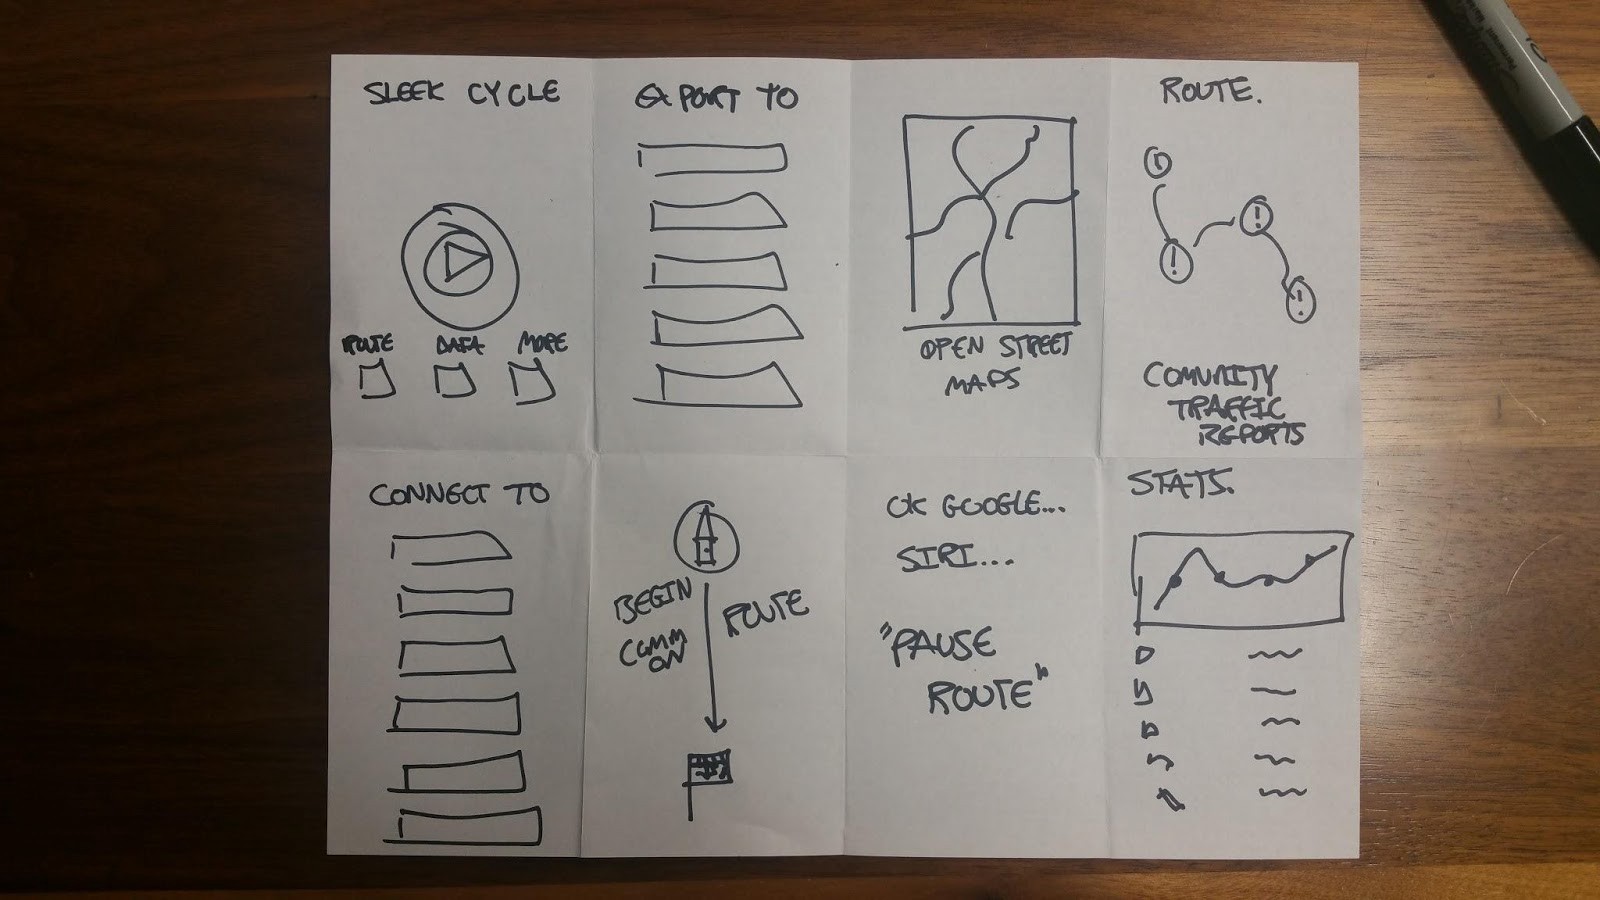 SLEEK CYCLE
ROUTE DATA MORE
EXPORT TO
OPEN STREET
MAPS
ROUTE.
!
!
!
COMUNITY
TRAFFIC
REPORTS
CONNECT TO
BEGIN
ROUTE
COMM
ON
OK GOOGLE...
SIRI...
"PAUSE
ROUTE"
STATS.